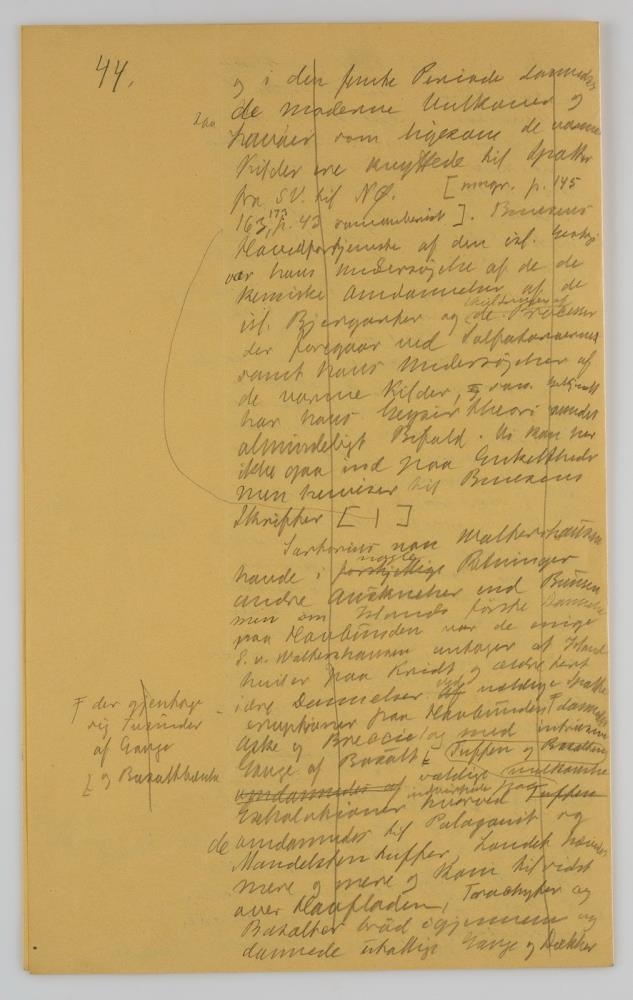 44.
og i den femte Periode dannedes
de moderne Vulkaner og
Laváer som ligesom de varme
Kilder ere knyttede til Spalter
fra SV. til NØ. [ p. 145
163, 173 p. 43 ]. Bunsens
Hovedfortjeneste af den isl. Geologi
var hans Undersøgelse af de
kemiske Omdannelser af de
isl. Bjergarter og de Processer
der foregaar ved Solfatarerne
samt hans Undersøgelser af
de varme Kilder,
har hans Geysir theori vundet
almindeligt Bifald. Vi kan her
ikke gaa ind paa Enkeltheder
men henviser til Bunsens
Skrifter [ 1 ]
Sartorius von Waltershausen
havde i nogle forskjellige Retninger
andre Anskuelser end Bunsen
men om Islands første Dannelse
paa Havbunden var de enige
S. v. Waltershausen antager at Island
hviler paa Kridt og ældre tert
iære Dannelser ved vældige Spalte
eruptioner paa Havbunden dannedes
Aske og Breccie og med
Gange af Basalt Tuffen og Basalten
omdannedes af vældige vulkanske
Exhalationer hvorved Tuffen
omdannedes til Palagonit og
Mandelsten tuffer, Landet hævedes
mere og mere og kom tilsidst
over Havfladen, Trachyter og
Basalter brød igjennem og
dannede utallige Gange og Dækker
der gjennem
af Gange
og Basaltbænke